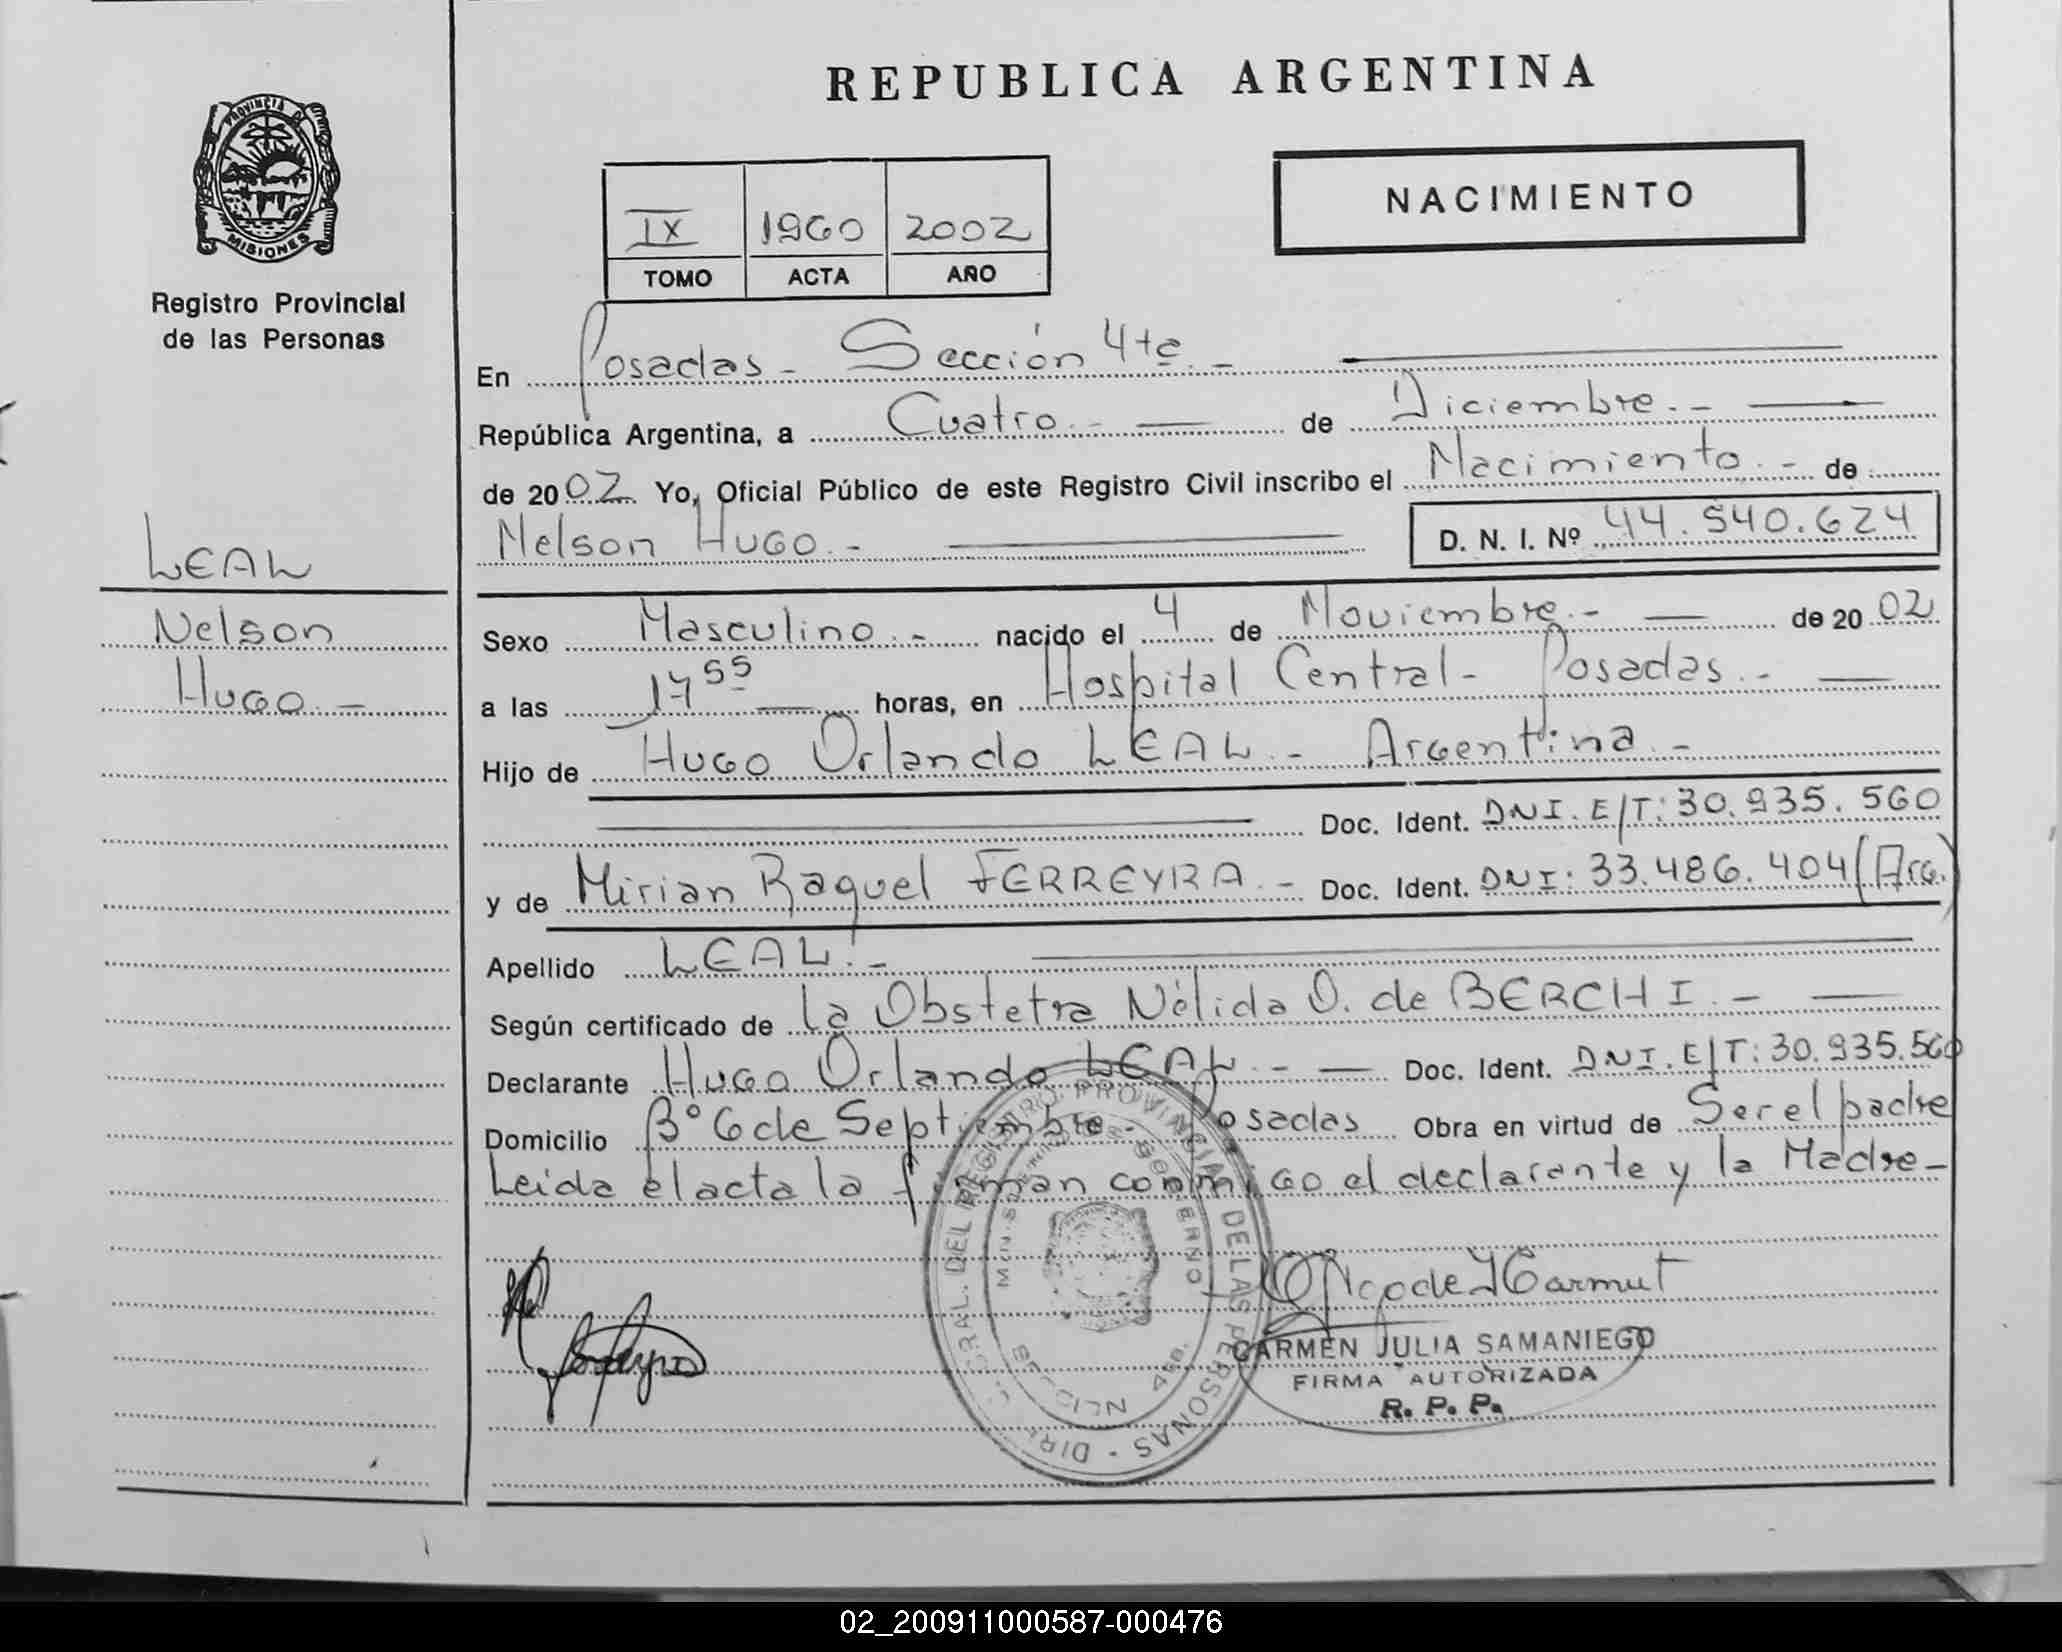 REPUBLICA ARGENTINA
PROVINCIA DE
MISIONES
Registro Provincial
de las Personas
NACIMIENTO
IX 1960 2002
TOMO ACTA AÑO
En Posadas - Sección 4ta. -
República Argentina, a Cuatro. - de Diciembre. -
de 2002 Yo, Oficial Público de este Registro Civil inscribo el Nacimiento. - de
Nelson Hugo. - D. N. I. Nº 44.540.624
LEAL
Nelson
Hugo. -
Sexo Masculino. - nacido el 4 de Noviembre. - de 2002
a las 17 55 horas, en Hospital Central - Posadas. -
Hijo de Hugo Orlando LEAL. - Argentina. -
Doc. Ident. DNI. E/T: 30.935.560
y de Mirian Raquel FERREYRA. - Doc. Ident. DNI: 33.486.404 (Arg.)
Apellido LEAL. -
Según certificado de la Obstetra Nélida O. de BERCHI. -
Declarante Hugo Orlando LEAL. - Doc. Ident. DNI. E/T: 30.935.560
Domicilio Bº 6 de Septiembre - Posadas Obra en virtud de Ser el padre
Leida el acta la firman conmigo el declarante y la Madre -
CARMEN JULIA SAMANIEGO
FIRMA AUTORIZADA
R. P. P.
DEL REGISTRO PROVINCIAL DE LAS PERSONAS
GOBIERNO
02_200911000587-000476